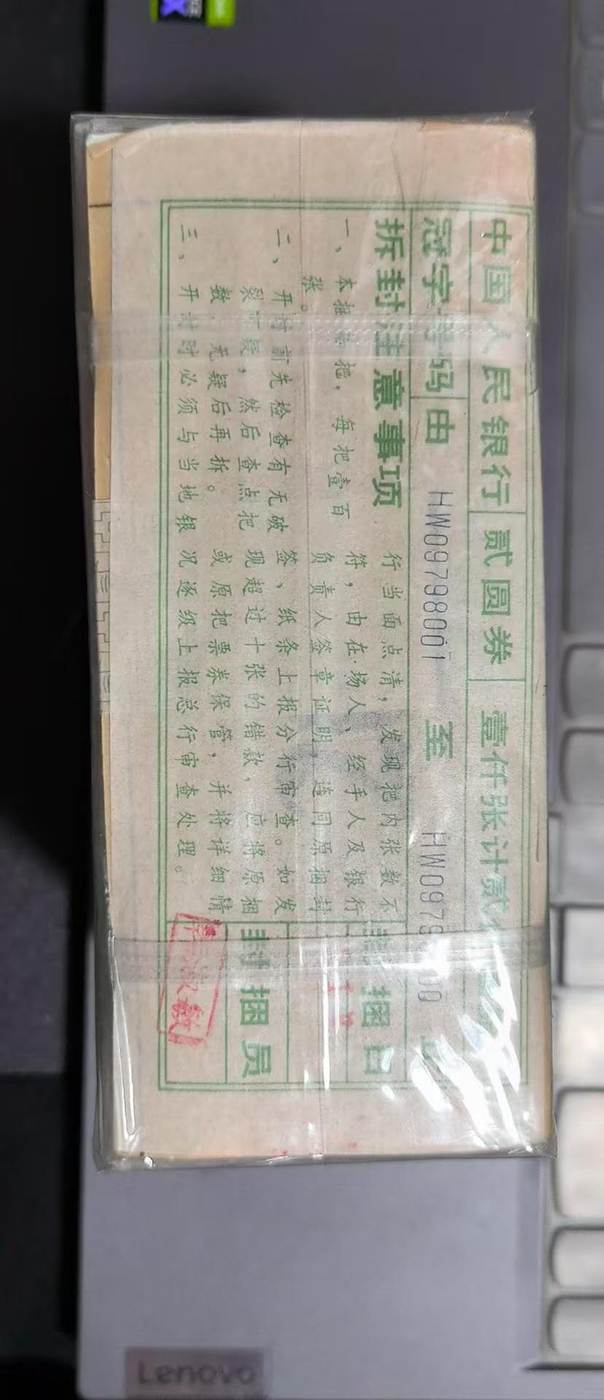 中国人民银行 贰圆券 壹仟张计贰
冠字号码由 HW09798001 至 HW0979
拆封注意事项
一、本捆十把，每把壹百
张。
二、开封前先检查有无破
裂可疑，然后查点把
数，无疑后再拆。
三、开封时必须与当地银
行当面点清，发现把内张数不
符，由在场人、经手人及银行
负责人签章证明，连同原捆封
签、纸条上报分行审查。如发
现超过十张的错款，应将原捆
或原把票券保管，并将详细情
况逐级上报总行审查处理。
封捆日
封捆员
Lenovo